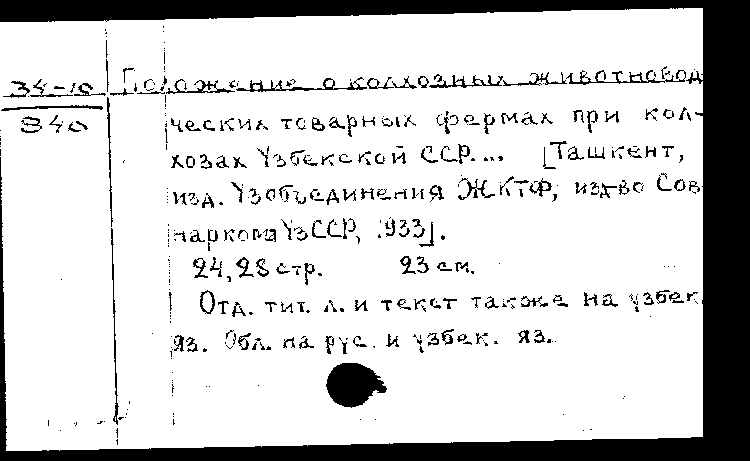 34-10 Положение о колхозных животновод
840 ческих товарных фермах при кол-
хозах Узбекской ССР... [Ташкент,
изд. Узобъединения ЖКТФ, изд-во Сов
наркома УзССР, 1933].
24, 28 стр. 23 см.
Отд. тит. л. и текст также на узбек.
яз. Обл. на рус. и узбек. яз.